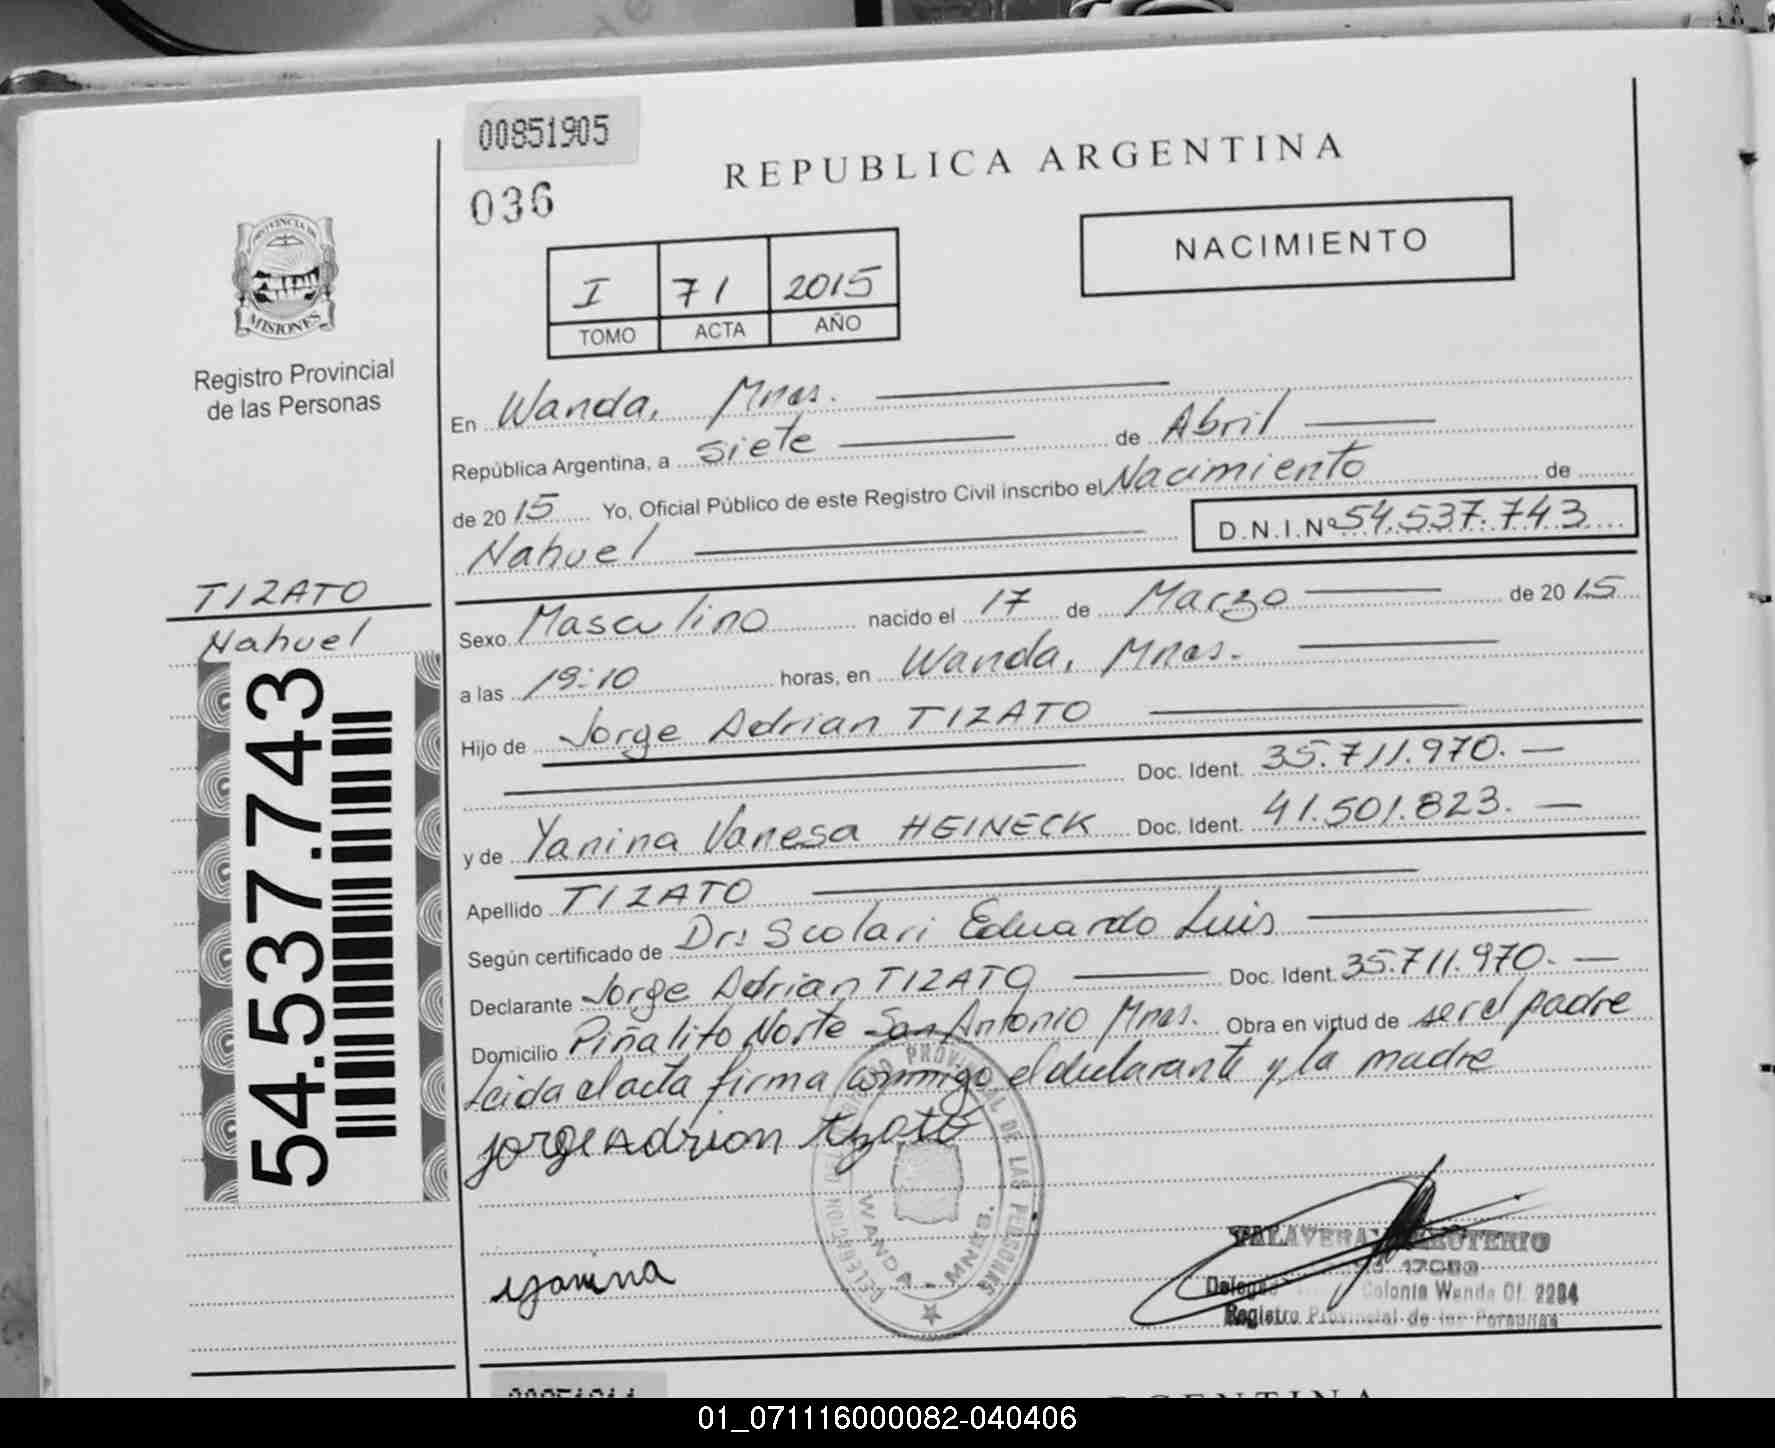 00851905
REPUBLICA ARGENTINA
036
NACIMIENTO
I 71 2015
TOMO ACTA AÑO
PROVINCIA DE
MISIONES
Registro Provincial
de las Personas
En Wanda, Mnes.
República Argentina, a siete de Abril
de 2015 Yo, Oficial Público de este Registro Civil inscribo el Nacimiento de
Nahuel D.N.I.Nº 54.537.743
TIZATO
Nahuel
54.537.743
Sexo Masculino nacido el 17 de Marzo de 2015
a las 19:10 horas, en Wanda, Mnes.
Hijo de Jorge Adrian TIZATO
Doc. Ident. 35.711.970.
y de Yanina Vanesa HEINECK Doc. Ident. 41.501.823.
Apellido TIZATO
Según certificado de Dr: Scolari Eduardo Luis
Declarante Jorge Adrian TIZATO Doc. Ident. 35.711.970.
Domicilio Piñalito Norte San Antonio Mnes. Obra en virtud de ser el padre
Leida el acta firma conmigo el declarante y la madre
Jorge Adrion tizato
REGISTRO PROVINCIAL DE LAS PERSONAS
DELEGACION
WANDA - MNES.
yanina
TALAVERA ELEUTERIO
Colonia Wanda Of. 2284
Registro Provincial de las Personas
ARGENTINA
01_071116000082-040406